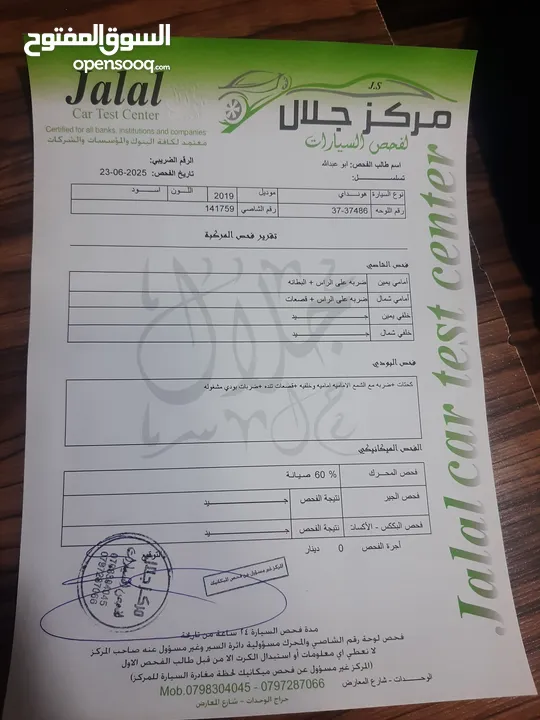 السوق المفتوح
opensooq.com
Jalal
Car Test Center
Certified for all banks, institutions and companies
معتمد لكافة البنوك والمؤسسات والشركات
J.S
مركز جلال
لفحص السيارات
اسم طالب الفحص: ابو عبدالله
الرقم الضريبي:
تسلسل:
تاريخ الفحص: 23-06-2025
نوع السيارة هونداي موديل 2019 اللون اسود
رقم اللوحه 37-37486 رقم الشاصي 141759
تقرير فحص المركبة
فحص الشاصي
أمامي يمين ضربه على الراس + البطانه
أمامي شمال ضربه على الراس + قصعات
خلفي يمين جيد
خلفي شمال جيد
فحص البودي
كحتات +ضربه مع الشمع الاماميه اماميه وخلفيه +قصعات تنده +ضربات بودي مشغوله
الفحص الميكانيكي
فحص المحرك 60 % صيانة
فحص الجير نتيجة الفحص جيد
فحص البكس - الأكسات نتيجة الفحص جيد
أجرة الفحص 0 دينار
المركز غير مسؤول عن فحص الميكانيك
مركز جلال
لفحص السيارات
0798304045
0797287066
مدة فحص السيارة ٢٤ ساعة من تاريخة
فحص لوحة رقم الشاصي والمحرك مسؤولية دائرة السير وغير مسؤول عنه صاحب المركز
لا نعطي أي معلومات أو استبدال الكرت الا من قبل طالب الفحص الاول
(المركز غير مسؤول عن فحص ميكانيك لحظة مغادرة السيارة للمركز)
Mob.0798304045 - 0797287066
الوحدات - شارع المعارض
حراج الوحدات - شارع المعارض
Jalal car test center